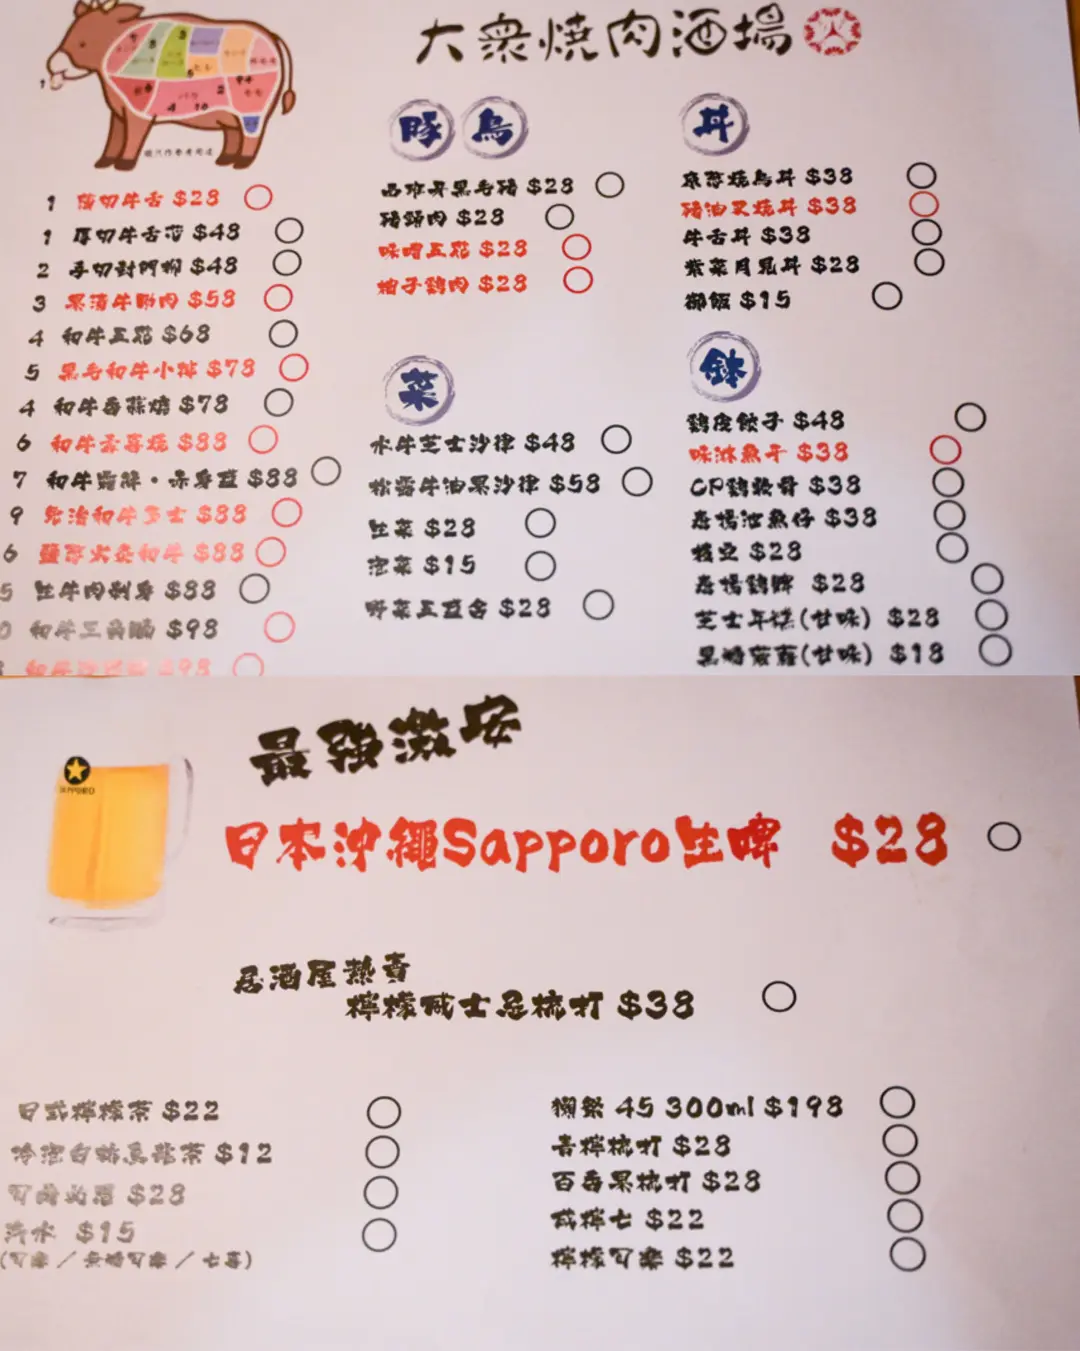 大衆燒肉酒場
1 薄切牛舌 $28
1 厚切牛舌芯 $48
2 手切封門柳 $48
3 $58
4 和牛五花 $68
5 黑毛和牛小排 $78
4 和牛香蒜燒 $78
6 和牛壽喜燒 $88
7 和牛 · 赤身 $88
9 和牛多士 $88
6 火炙和牛 $88
5 生牛肉刺身 $88
0 和牛三角 $98
和牛 $98
豚 鳥
西班牙黑毛豬 $28
豬頸肉 $28
味噌五花 $28
柚子雞肉 $28
菜
水牛芝士沙律 $48
松露牛油果沙律 $58
生菜 $28
泡菜 $15
野菜五盛合 $28
丼
燒鳥丼 $38
豬油叉燒丼 $38
牛舌丼 $38
紫菜月見丼 $28
御飯 $15
鉢
雞皮餃子 $48
味淋魚干 $38
CP雞軟骨 $38
唐揚池魚仔 $38
枝豆 $28
唐揚雞髀 $28
芝士年糕(甘味) $28
黑糖蕨餅(甘味) $18
最強激安
SAPPORO
日本沖繩Sapporo生啤 $28
居酒屋熱賣
檸檬威士忌梳打 $38
日式檸檬茶 $22
冷泡白桃烏龍茶 $12
可爾必思 $28
汽水 $15
(可樂／無糖可樂／七喜)
獺祭 45 300ml $198
青檸梳打 $28
百香果梳打 $28
咸檸七 $22
檸檬可樂 $22